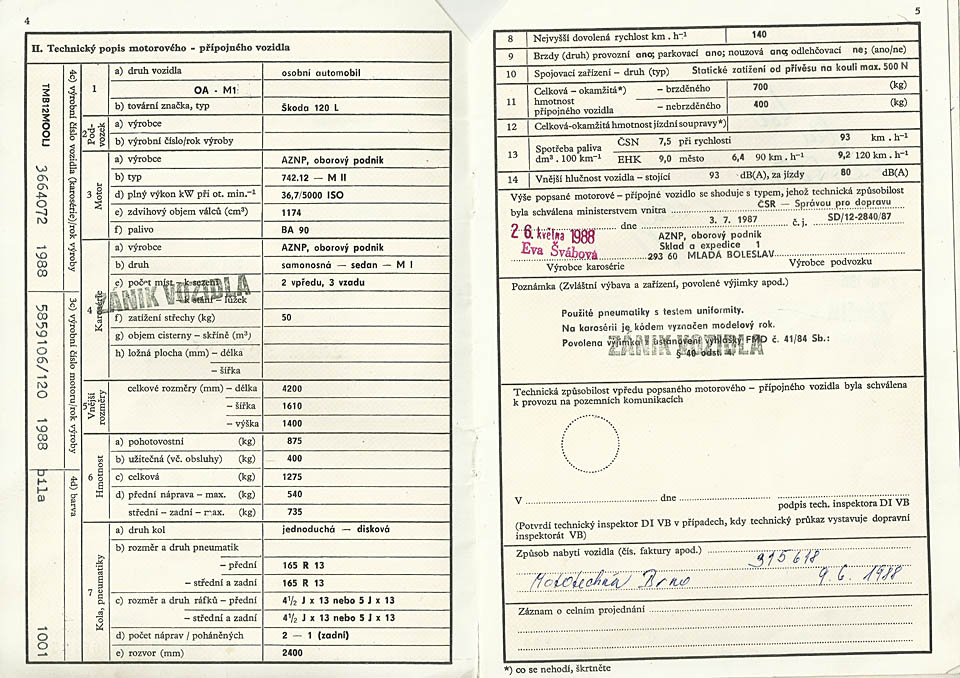 4
II. Technický popis motorového – přípojného vozidla
4c) výrobní číslo vozidla (karosérie)/rok výroby
TMB12MOOIJ 3664072 1988
3c) výrobní číslo motoru/rok výroby
5859106/120 1988
4d) barva
bílá 1001
1
a) druh vozidla osobní automobil
OA - M1
b) tovární značka, typ Škoda 120 L
2 Podvozek
a) výrobce
b) výrobní číslo/rok výroby
3 Motor
a) výrobce AZNP, oborový podnik
b) typ 742.12 — M II
d) plný výkon kW při ot. min.⁻¹ 36,7/5000 ISO
e) zdvihový objem válců (cm³) 1174
f) palivo BA 90
4 Karosérie
a) výrobce AZNP, oborový podnik
b) druh samonosná — sedan — M I
e) počet míst – k sezení 2 vpředu, 3 vzadu
– k stání – lůžek
ZÁNIK VOZIDLA
f) zatížení střechy (kg) 50
g) objem cisterny – skříně (m³)
h) ložná plocha (mm) – délka
– šířka
5 Vnější rozměry
celkové rozměry (mm) – délka 4200
– šířka 1610
– výška 1400
6 Hmotnost
a) pohotovostní (kg) 875
b) užitečná (vč. obsluhy) (kg) 400
c) celková (kg) 1275
d) přední náprava – max. (kg) 540
střední – zadní – max. (kg) 735
7 Kola, pneumatiky
a) druh kol jednoduchá — disková
b) rozměr a druh pneumatik
– přední 165 R 13
– střední a zadní 165 R 13
c) rozměr a druh ráfků – přední 4¹/₂ J x 13 nebo 5 J x 13
– střední a zadní 4¹/₂ J x 13 nebo 5 J x 13
d) počet náprav / poháněných 2 — 1 (zadní)
e) rozvor (mm) 2400
5
8 Nejvyšší dovolená rychlost km . h⁻¹ 140
9 Brzdy (druh) provozní ano; parkovací ano; nouzová ano; odlehčovací ne; (ano/ne)
10 Spojovací zařízení – druh (typ) Statické zatížení od přívěsu na kouli max. 500 N
11 Celková – okamžitá*) – brzděného 700 (kg)
hmotnost
přípojného vozidla – nebrzděného 400 (kg)
12 Celková-okamžitá hmotnost jízdní soupravy*)
13 Spotřeba paliva ČSN 7,5 při rychlosti 93 km . h⁻¹
dm³ . 100 km⁻¹ EHK 9,0 město 6,4 90 km . h⁻¹ 9,2 120 km . h⁻¹
14 Vnější hlučnost vozidla – stojící 93 dB(A), za jízdy 80 dB(A)
Výše popsané motorové – přípojné vozidlo se shoduje s typem, jehož technická způsobilost
byla schválena ministerstvem vnitra ČSR — Správou pro dopravu
dne 3. 7. 1987 č. j. SD/12-2840/87
26. května 1988
Eva Švábová
AZNP, oborový podnik
Sklad a expedice 1
293 60 MLADÁ BOLESLAV
Výrobce karosérie Výrobce podvozku
Poznámka (Zvláštní výbava a zařízení, povolené výjimky apod.)
Použité pneumatiky s testem uniformity.
Na karosérii je kódem vyznačen modelový rok.
Povolena výjimka z ustanovení vyhlášky FMD č. 41/84 Sb.:
§ 40 odst. 4.
ZÁNIK VOZIDLA
Technická způsobilost vpředu popsaného motorového – přípojného vozidla byla schválena
k provozu na pozemních komunikacích
V dne
podpis tech. inspektora DI VB
(Potvrdí technický inspektor DI VB v případech, kdy technický průkaz vystavuje dopravní
inspektorát VB)
Způsob nabytí vozidla (čís. faktury apod.) 315618
Mototechna Brno 9. 6. 1988
Záznam o celním projednání
*) co se nehodí, škrtněte